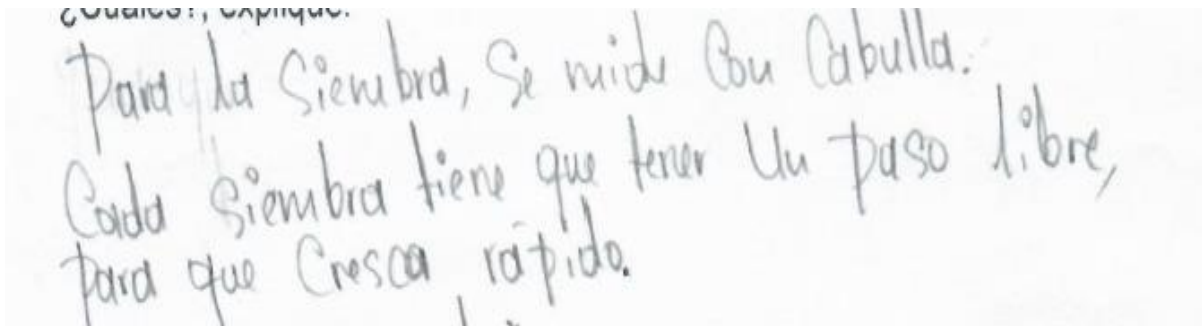 ¿Cuáles?, explique.
Para la Siembra, Se mide Con Cabulla.
Cada Siembra tiene que tener Un paso libre,
para que Cresca rápido.